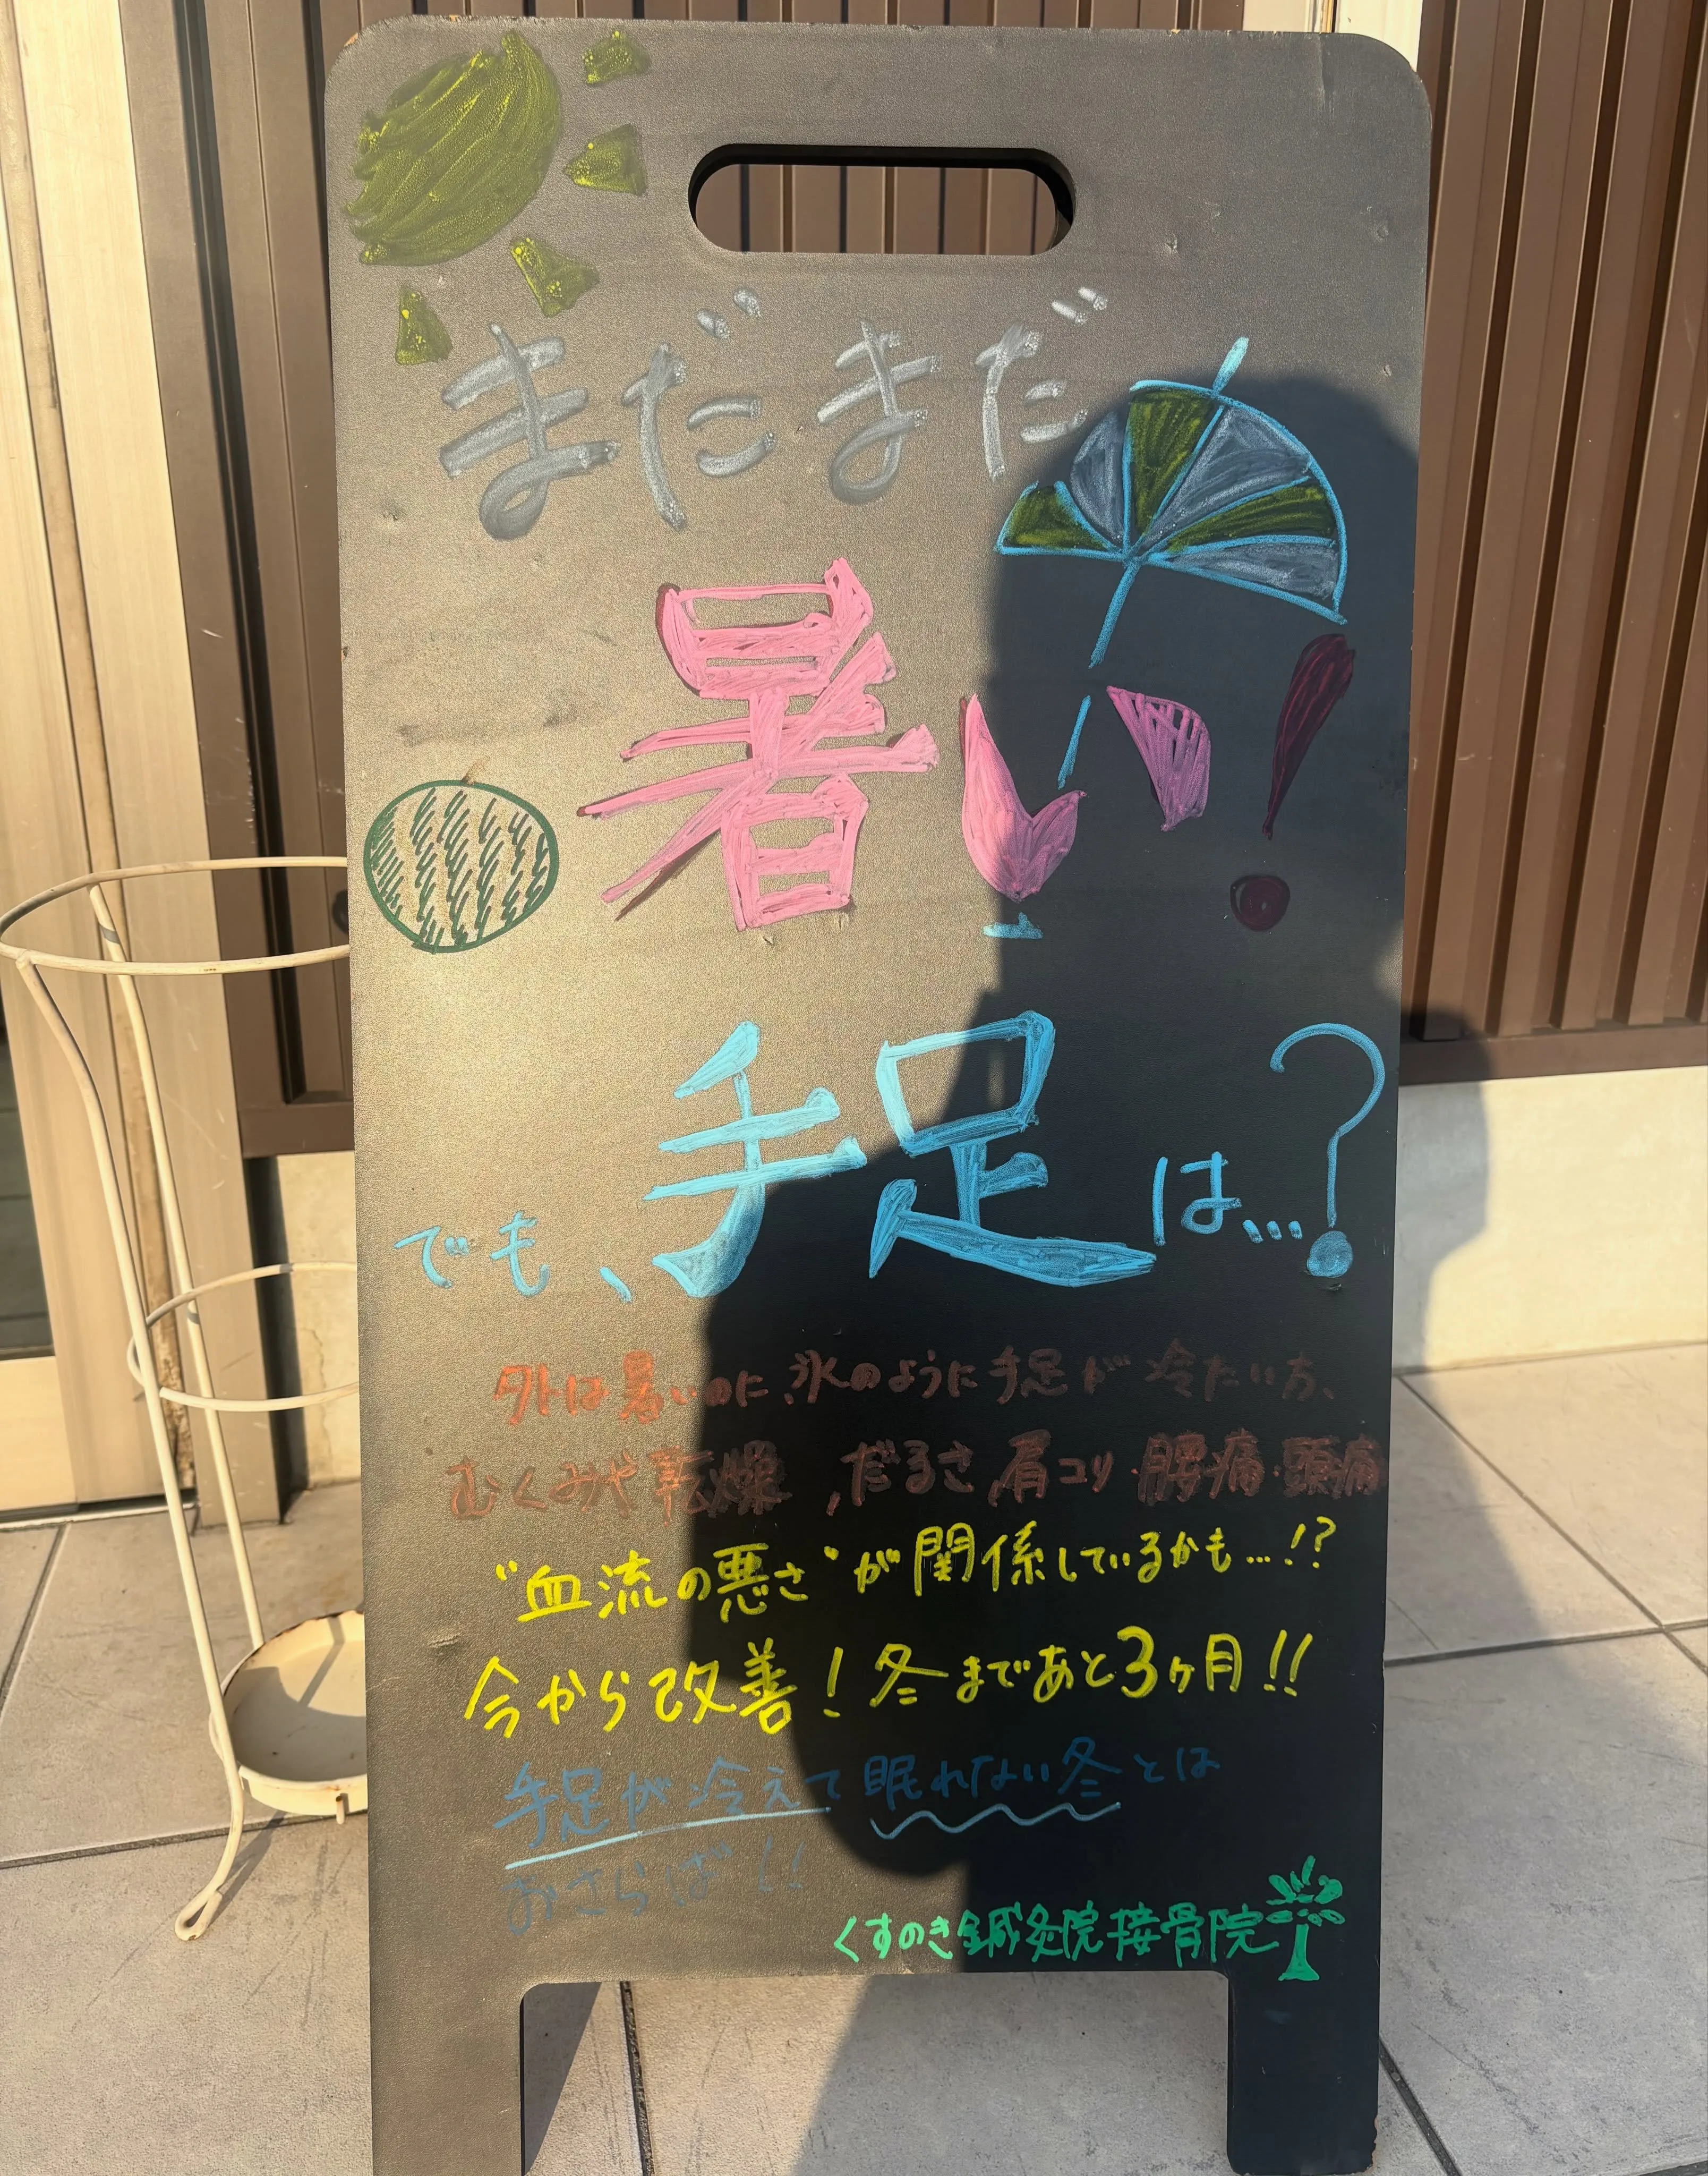 まだまだ
暑い!
でも、手足は…?
外は暑いのに、氷のように手足が冷たい方、
むくみや乾燥、だるさ、肩コリ・腰痛・頭痛
"血流の悪さ"が関係しているかも…!?
今から改善!冬まであと3ヶ月!!
手足が冷えて眠れない冬とは
おさらば!!
くすのき鍼灸院接骨院